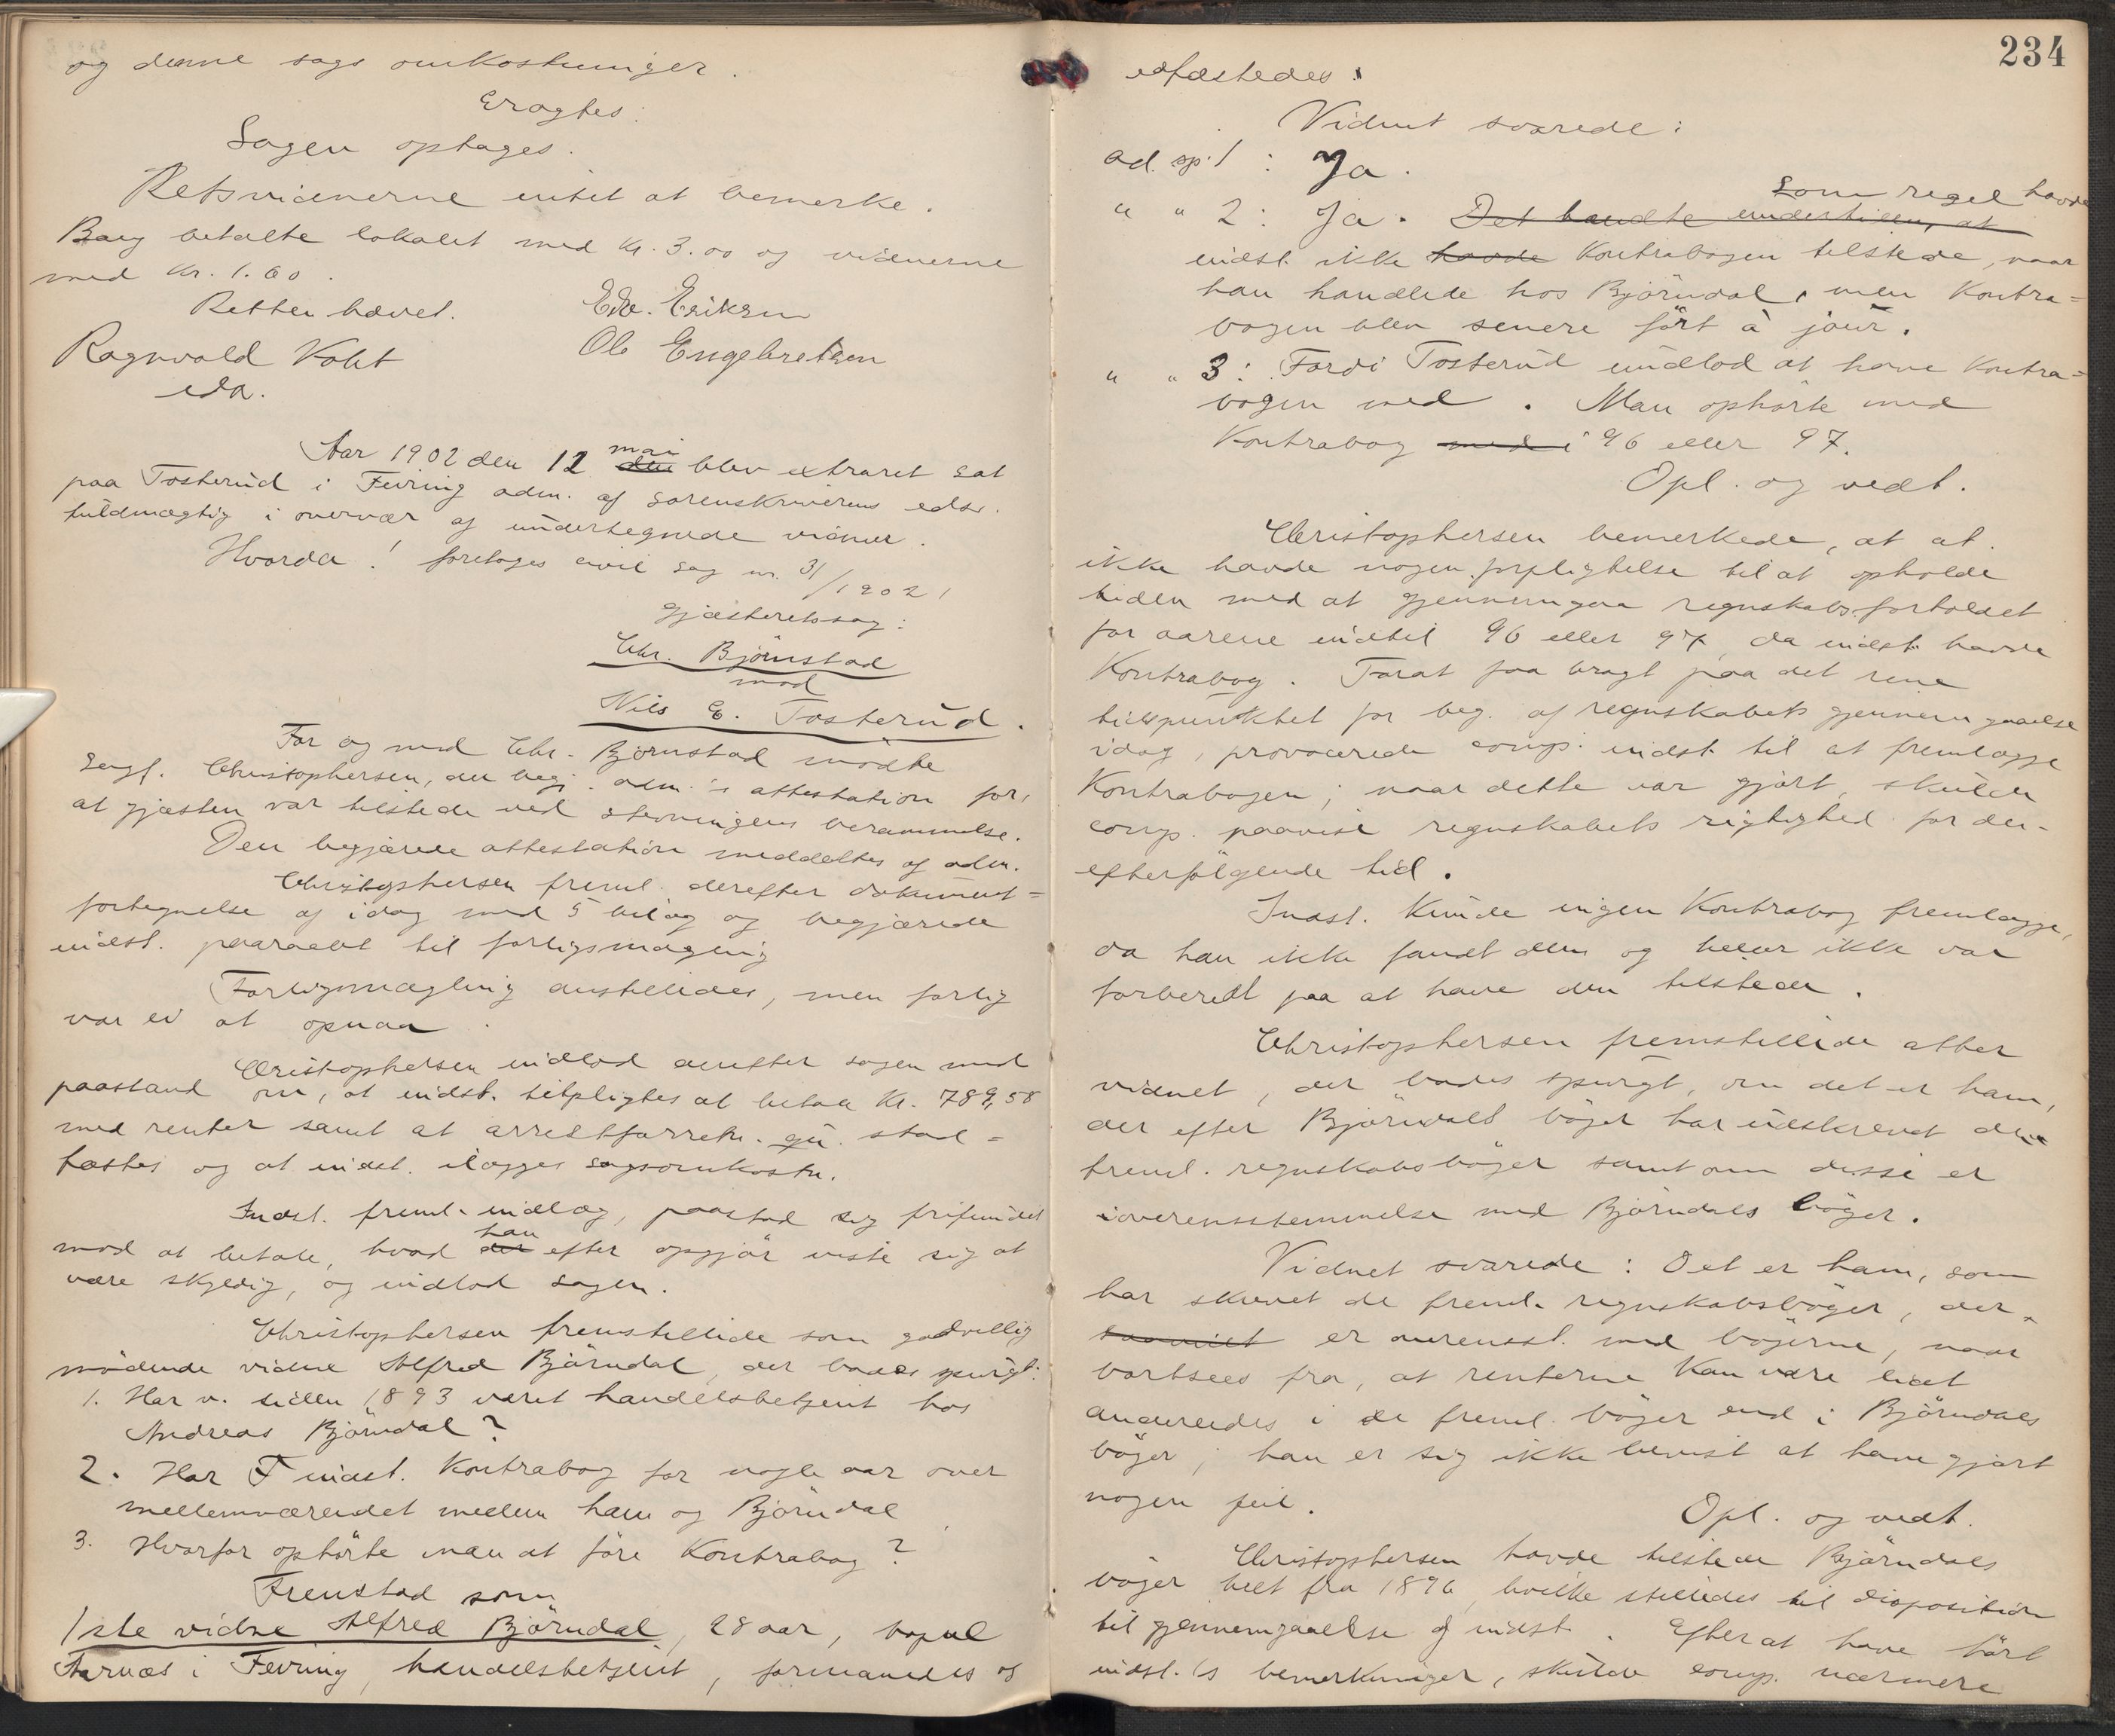 og denne sags omkostninger.
Eragtes:
Sagen optages.
Retsvidnerne intet at bemerke.
Berg betalte lokalet med kr. 3.00 og vidnerne
med kr. 1.60.
Retten hævet.
Edv. Eriksen
Ragnvald Vokt
Ole Engebretsen
eda.
Aar 1902 den 12 mai den blev extraret sat
paa Tosterud i Feiring adm. af sorenskriverens edsv.
fuldmægtig i overvær af undertegnede vidner.
Hvorda! foretoges civil sag nr. 31/1902,
gjæsteretssag:
Chr. Björnstad
mod
Nils E. Tosterud.
For og med Chr. Björnstad mödte
sagf. Christophersen, der begj. adm.'s attestation for,
at gjæsten var tilstede ved stevningens berammelse.
Den begjærede attestation meddeltes af adm.
Christophersen freml. derefter dokument=
fortegnelse af idag med 5 bilag og begjærede
indst. paaraabt til forligsmægling
Forligsmægling anstilledes, men forlig
var ei at opnaa.
Christophersen indlod derefter sagen med
paastand om, at indst. tilpligtes at betale Kr. 789,58
med renter samt at arrestforretn. gu. stad=
fæstes og at indst. ilægges sagsomkostn.
Indst. freml. indlæg, paastod sig frifundet
mod at betale, hvad der han efter opgjör viste sig at
være skyldig, og indlod sagen.
Christophersen fremstillede som godvillig
mödende vidne Alfred Björndal, der bades spurgt:
1. Har v. siden 1893 været handelsbetjent hos
Andreas Björndal?
2. Har T indst. Kontrabog for nogle aar over
mellemværendet mellem ham og Björndal
3. Hvorfor ophörte man at före Kontrabog?
Fremstod som
1ste vidne Alfred Björndal, 28 aar, bopæl
Aarnæs i Feiring, handelsbetjent, formanedes og
234
edfæstedes:
Vidnet svarede:
ad. sp. 1: Ja.
" " 2: Ja. Det hændte undertiden, at Som regel havde
indst. ikke havde Kontrabogen tilstede, naar
han handlede hos Björndal, men Kontra=
bogen blev senere fört à jour.
" " 3: Fordi Tosterud undlod at have Kontra=
bogen med. Man ophörte med
Kontrabog med i 96 eller 97.
Opl. og vedt.
Christophersen bemerkede, at at.
ikke havde nogen forpligtelse til at opholde
tiden med at gjennemgaa regnskabsforholdet
for aarene indtil 96 eller 97, da indst. havde
Kontrabog. For at faa bragt paa det rene
tidspunktet for beg. af regnskabets gjennemgaaelse
idag, provocerede comp. indst. til at fremlægge
Kontrabogen; naar dette var gjort, skulde
comp. paavise regnskabets rigtighed for den
efterfölgende tid.
Indst. kunde ingen Kontrabog fremlægge,
da han ikke fandt den og heller ikke var
forberedt paa at have den tilstede.
Christophersen fremstillede atter
vidnet, der bades spurgt, om det er ham,
der efter Björndals böger har udskrevet de
freml. regnskabsböger samt om disse er
i overensstemmelse med Björndals böger.
Vidnet svarede: Det er ham, som
har skrevet de freml. regnskabsböger, der
er overensst. med bögerne, naar
bortsees fra, at renterne kan være lidt
anderledes i de freml. böger end i Björndals
böger; han er sig ikke bevist at have gjort
nogen feil.
Opl. og vedt.
Christophersen havde tilstede Björndals
böger helt fra 1896, hvilke stilledes til disposition
til gjennemgaaelse af indst. Efter at have hört
indst.'s bemerkninger, skulde comp. nærmere